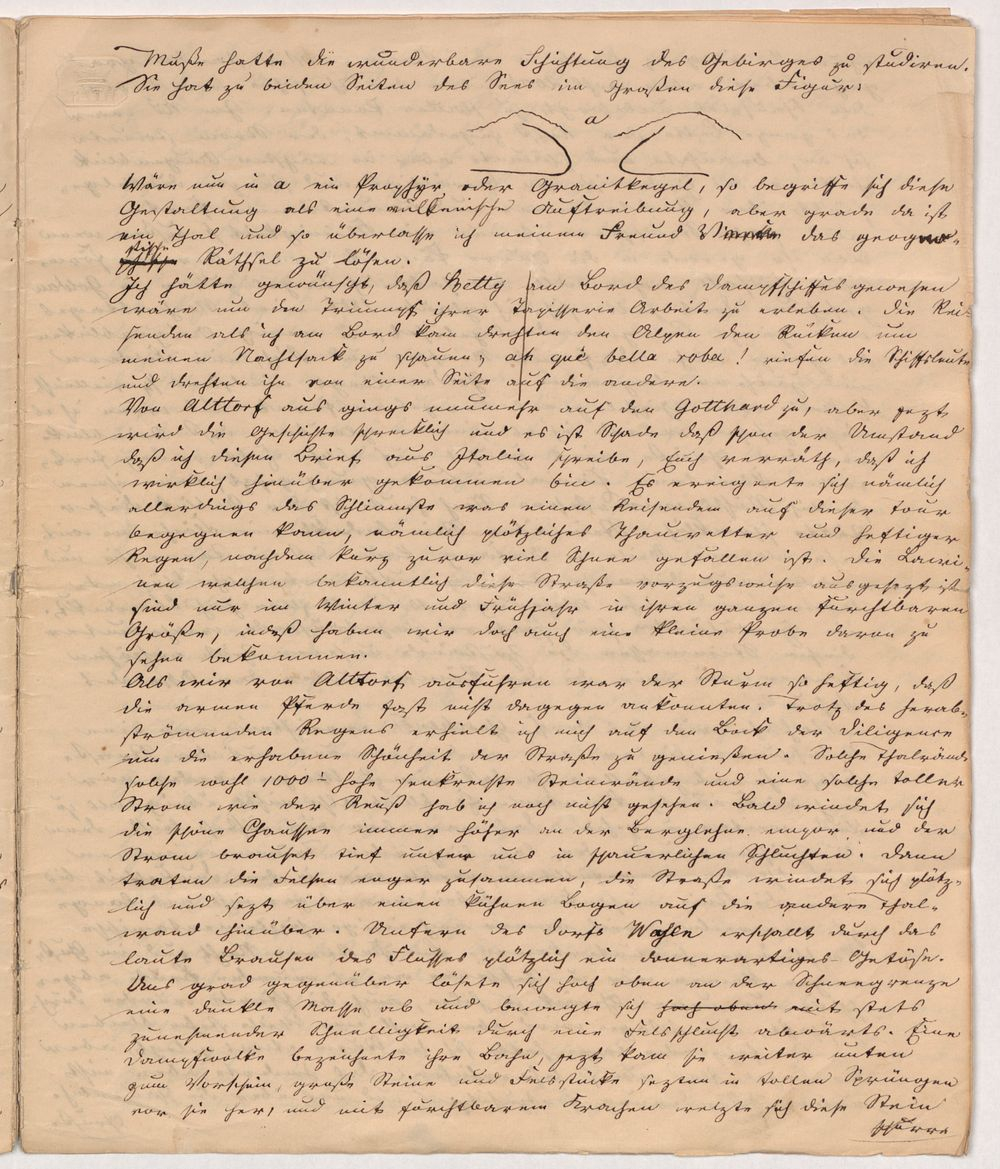 Muße hatte die wunderbare Schichtung des Gebirges zu studiren.
Sie hat zu beiden Seiten des Sees im Großen diese Figur:
a
Wäre nun in a ein Prophyr oder Granitkegel, so begriffe sich diese
Gestaltung als eine vulkanische Auftreibung, aber grade da ist
ein Thal und so überlasse ich meinem Freund das geogno-
stische Räthsel zu lösen.
Ich hätte gewünscht, daß Betty am Bord des Dampfschiffes gewesen
wäre um den Triumpf ihrer Tapisserie Arbeit zu erleben. Die Rei-
senden als ich am Bord kam drehten den Alpen den Rücken um
meinen Nachtsack zu schauen, ah què bella roba! riefen die Schiffsleute
und drehten ihn von einer Seite auf die andere.
Von Alttorf aus gings nunmehr auf den Gotthard zu, aber jezt
wird die Geschichte schrecklich und es ist Schade daß schon der Umstand
daß ich diesen Brief aus Italien schreibe, Euch verräth, daß ich
wirklich hinüber gekommen bin. Es ereignete sich nämlich
allerdings das Schlimste was einen Reisenden auf dieser tour
begegnen kann, nämlich plötzliches Thauwetter und heftiger
Regen, nachdem kurz zuvor viel Schnee gefallen ist. Die Lawi-
nen welchen bekanntlich diese Straße vorzugsweise ausgesezt ist
sind nur im Winter und Frühjahr in ihren ganzen furchtbaren
Größe, indeß haben wir doch auch eine kleine Probe davon zu
sehen bekommen.
Als wir von Alttorf ausfuhren war der Sturm so heftig, daß
die armen Pferde fast nicht dagegen ankonnten. Trotz des herab-
strömenden Regens erhielt ich mich auf dem Bock der Diligence
um die erhabene Schönheit der Straße zu genießen. Solche Thalränd
solche wohl 1000' hohe senkrechte Steinwände und eine solche toller
Strom wie der Reuß hab ich noch nicht gesehen. Bald windet sich
die schöne Chaussee immer höher an der Berglehne empor und der
Strom brauset tief unter uns in schauerlichen Schluchten. Dann
traten die Felsen enger zusammen, die Straße windet sich plötz-
lich und sezt über einen kühnen Bogen auf die andere Thal-
wand hinüber. Unfern des Dorfs Wasen erschallt durch das
laute Brausen des Flusses plötzlich ein donnerartiges Getöse.
Uns grad gegenüber lösete sich hoch oben an der Schneegrenze
eine dunkle Masse ab und bewegte sich hoch oben mit stets
zunehmender Schnelligkeit durch eine Felsschlucht abwärts. Eine
Dampfwolke bezeichnete ihre Bahn, jezt kam sie weiter unten
zum Vorschein, große Steine und Felsstücke sezten in tollen Sprüngen
vor sie her, und mit furchtbarem Krachen welzte sich diese Stein